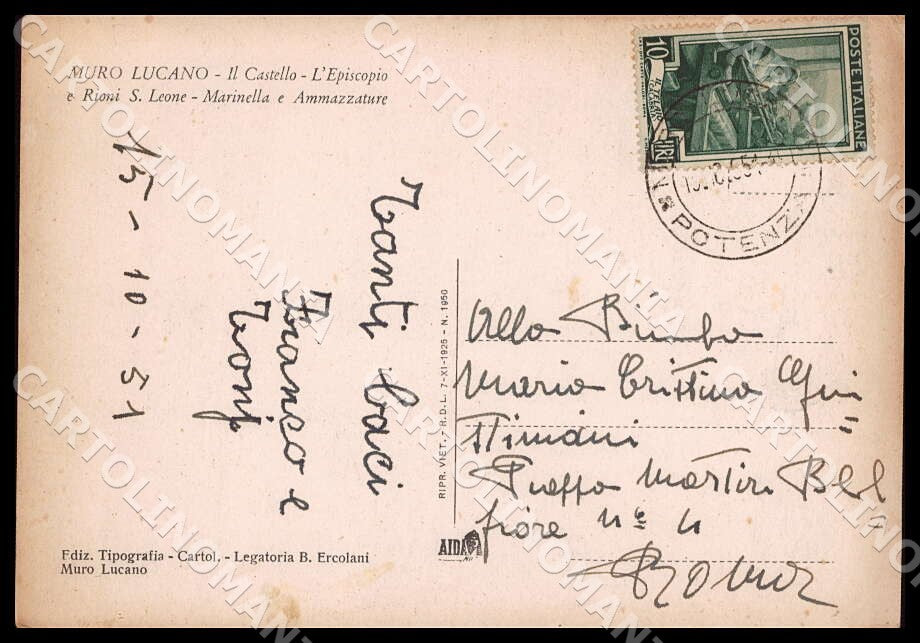 MURO LUCANO - Il Castello - L'Episcopio
e Rioni S. Leone - Marinella e Ammazzature
15-10-51
Tanti baci
Franco e
POSTE ITALIANE
10
LIRE
POTENZA
RIPR. VIET. - R.D.L. 7-XI-1925 - N. 1950
Alla Bimba
Maria Cristina
Piazza Martiri Bel
fiore nº 4
Roma
AIDA
Ediz. Tipografia - Cartol. - Legatoria B. Ercolani
Muro Lucano
CARTOLINOMANIA